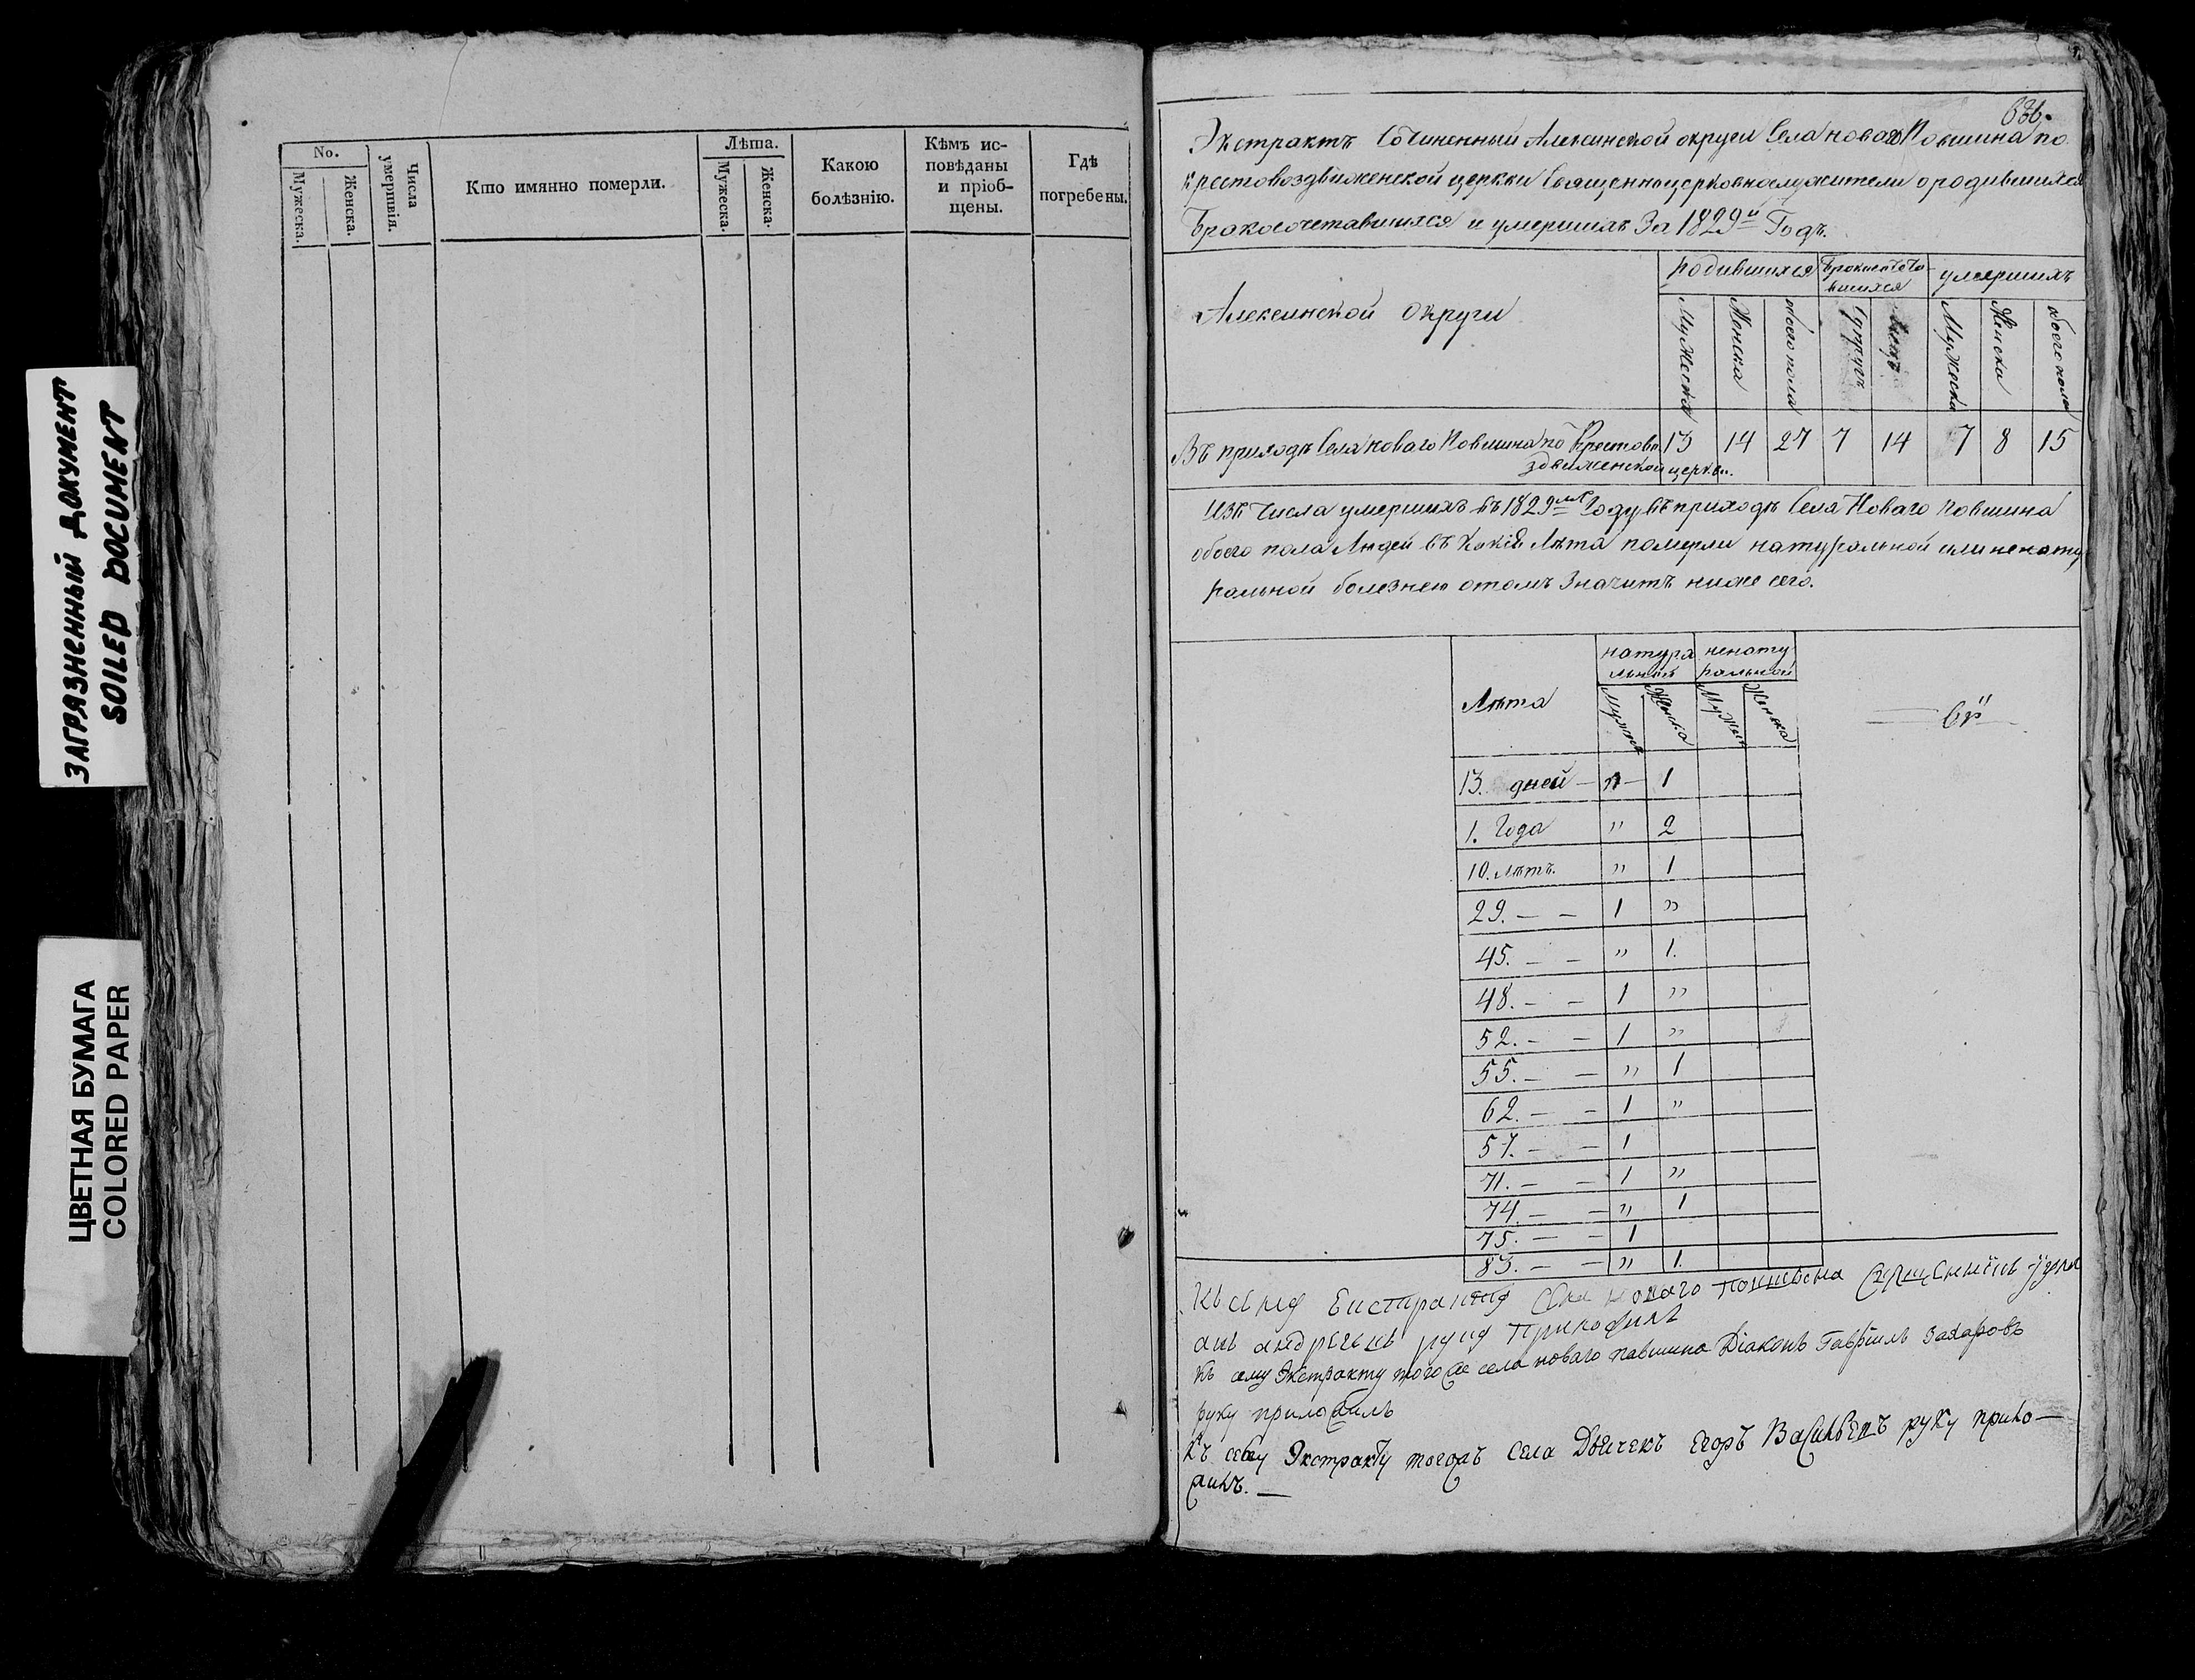 ЗАГРЯЗНЕННЫЙ ДОКУМЕНТ
SOILED DOCUMENT
ЦВЕТНАЯ БУМАГА
COLORED PAPER
No.
Мужеска.
Женска.
Числа умертвія.
Кто имянно померли.
Лѣта.
Мужеска.
Женска.
Какою болѣзнію.
Кѣмъ исповѣданы и пріобщены.
Гдѣ погребены.
Экстрактъ Сочиненный Алексинской округи Села новаго Повшина по
крестовоздвиженской церкви Священноцерковнослужители о родившихся
Бракосочетавшихся и умершихъ За 1829й Годъ.
Алексинской Округи
родившихся
умершихъ
Мужеска
Женска
обоего пола
Мужеска
Женска
обоего пола
Въ приходѣ Села новаго Повшина по Крестово 13 14 27 7 14 7 8 15
здвиженской церкви.
Изъ Числа умершихъ въ 1829мъ Году въ приходѣ Села Новаго Повшина
обоего пола Людей въ какія Лѣта померли натуральной или ненату
ральной болезнею о томъ Значитъ ниже сего.
Лѣта
натура
льной
ненату
ральной
Женска
Женска
13. дней — " — 1
1. Года " 2
10. лѣтъ. " 1
29. — — 1 "
45. — — " 1.
48. — — 1 "
52. — — 1 "
55. — — " 1
62. — — 1 "
57. — — 1
71. — — 1 "
74. — — " 1
75. — — 1
83. — — " 1.
Къ сему Екстракту села новаго священникъ
андреевъ руку приложилъ
Къ сему Экстракту того же села новаго павшина Діаконъ Гавріилъ Захаровъ
руку приложилъ
Къ сему Экстракту тогожъ Села Дьячекъ Егоръ Васильевъ руку прило—
жилъ. —